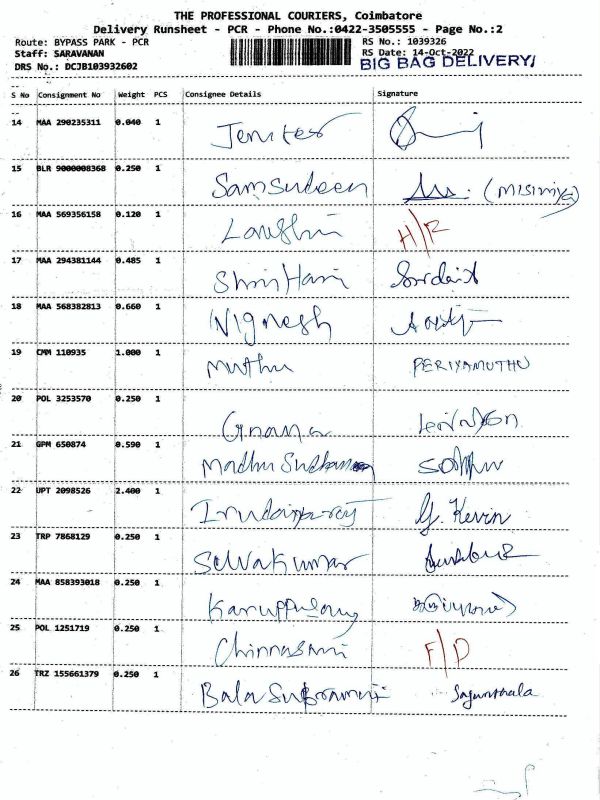 THE PROFESSIONAL COURIERS, Coimbatore
Delivery Runsheet - PCR - Phone No.:0422-3505555 - Page No.:2
Route: BYPASS PARK - PCR RS No.: 1039326
Staff: SARAVANAN RS Date: 14-Oct-2022
DRS No.: DCJB103932602 BIG BAG DELIVERY/
S No Consignment No Weight PCS Consignee Details Signature
14 MAA 290235311 0.040 1 Jenifer
15 BLR 9000008368 0.250 1 Samsudeen
16 MAA 569356158 0.120 1 H/R
17 MAA 294381144 0.485 1 Shri Hari
18 MAA 568382813 0.660 1 Vignesh
19 CMM 110935 1.000 1 Muthu PERIYAMUTHU
20 POL 3253570 0.250 1 Gnana
21 GPM 650874 0.590 1 Madhu Sudhanan
22 UPT 2098526 2.400 1 Irudayaraj G. Kevin
23 TRP 7868129 0.250 1 Selvakumar
24 MAA 858393018 0.250 1 Karuppusamy
25 POL 1251719 0.250 1 Chinnasami F/D
26 TRZ 155661379 0.250 1 Bala Subramani Sagunthala